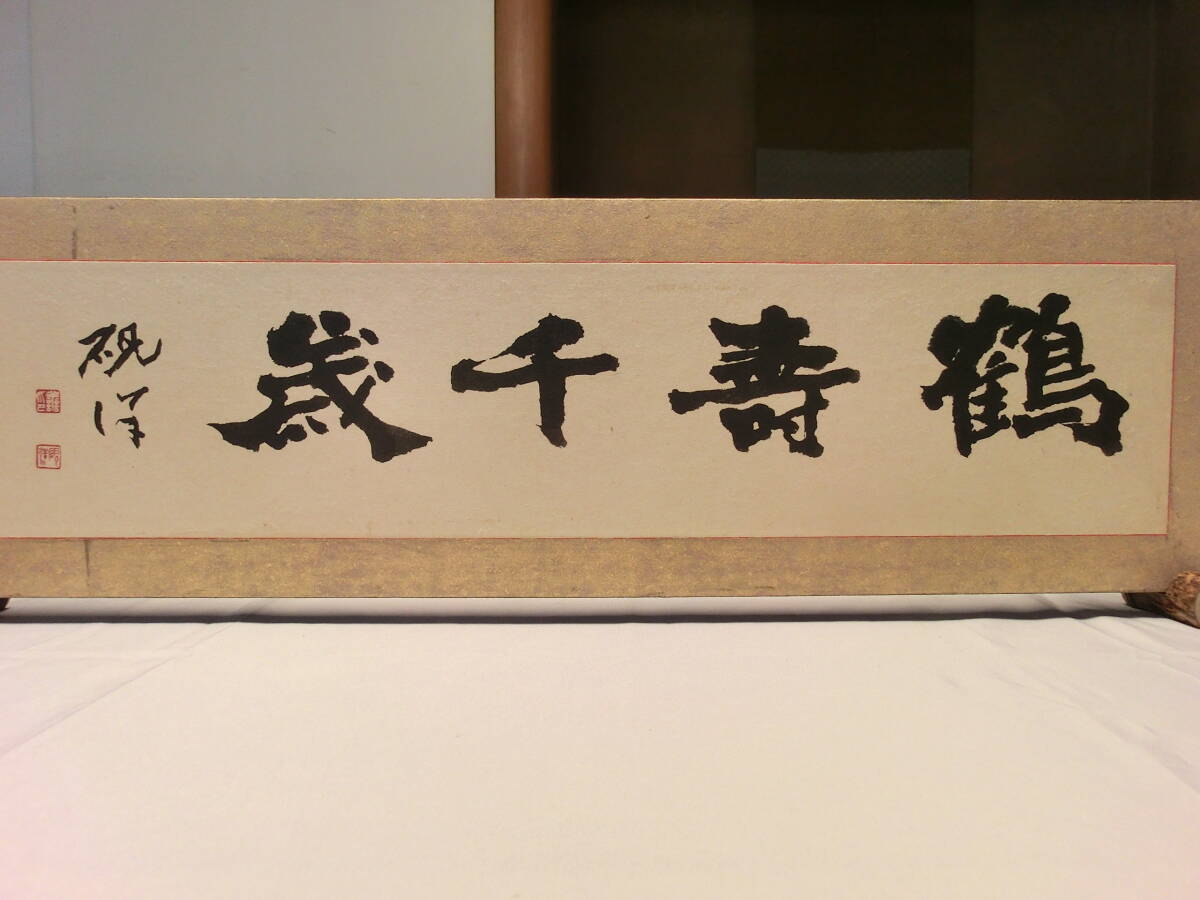 鶴壽千歳
硯洋